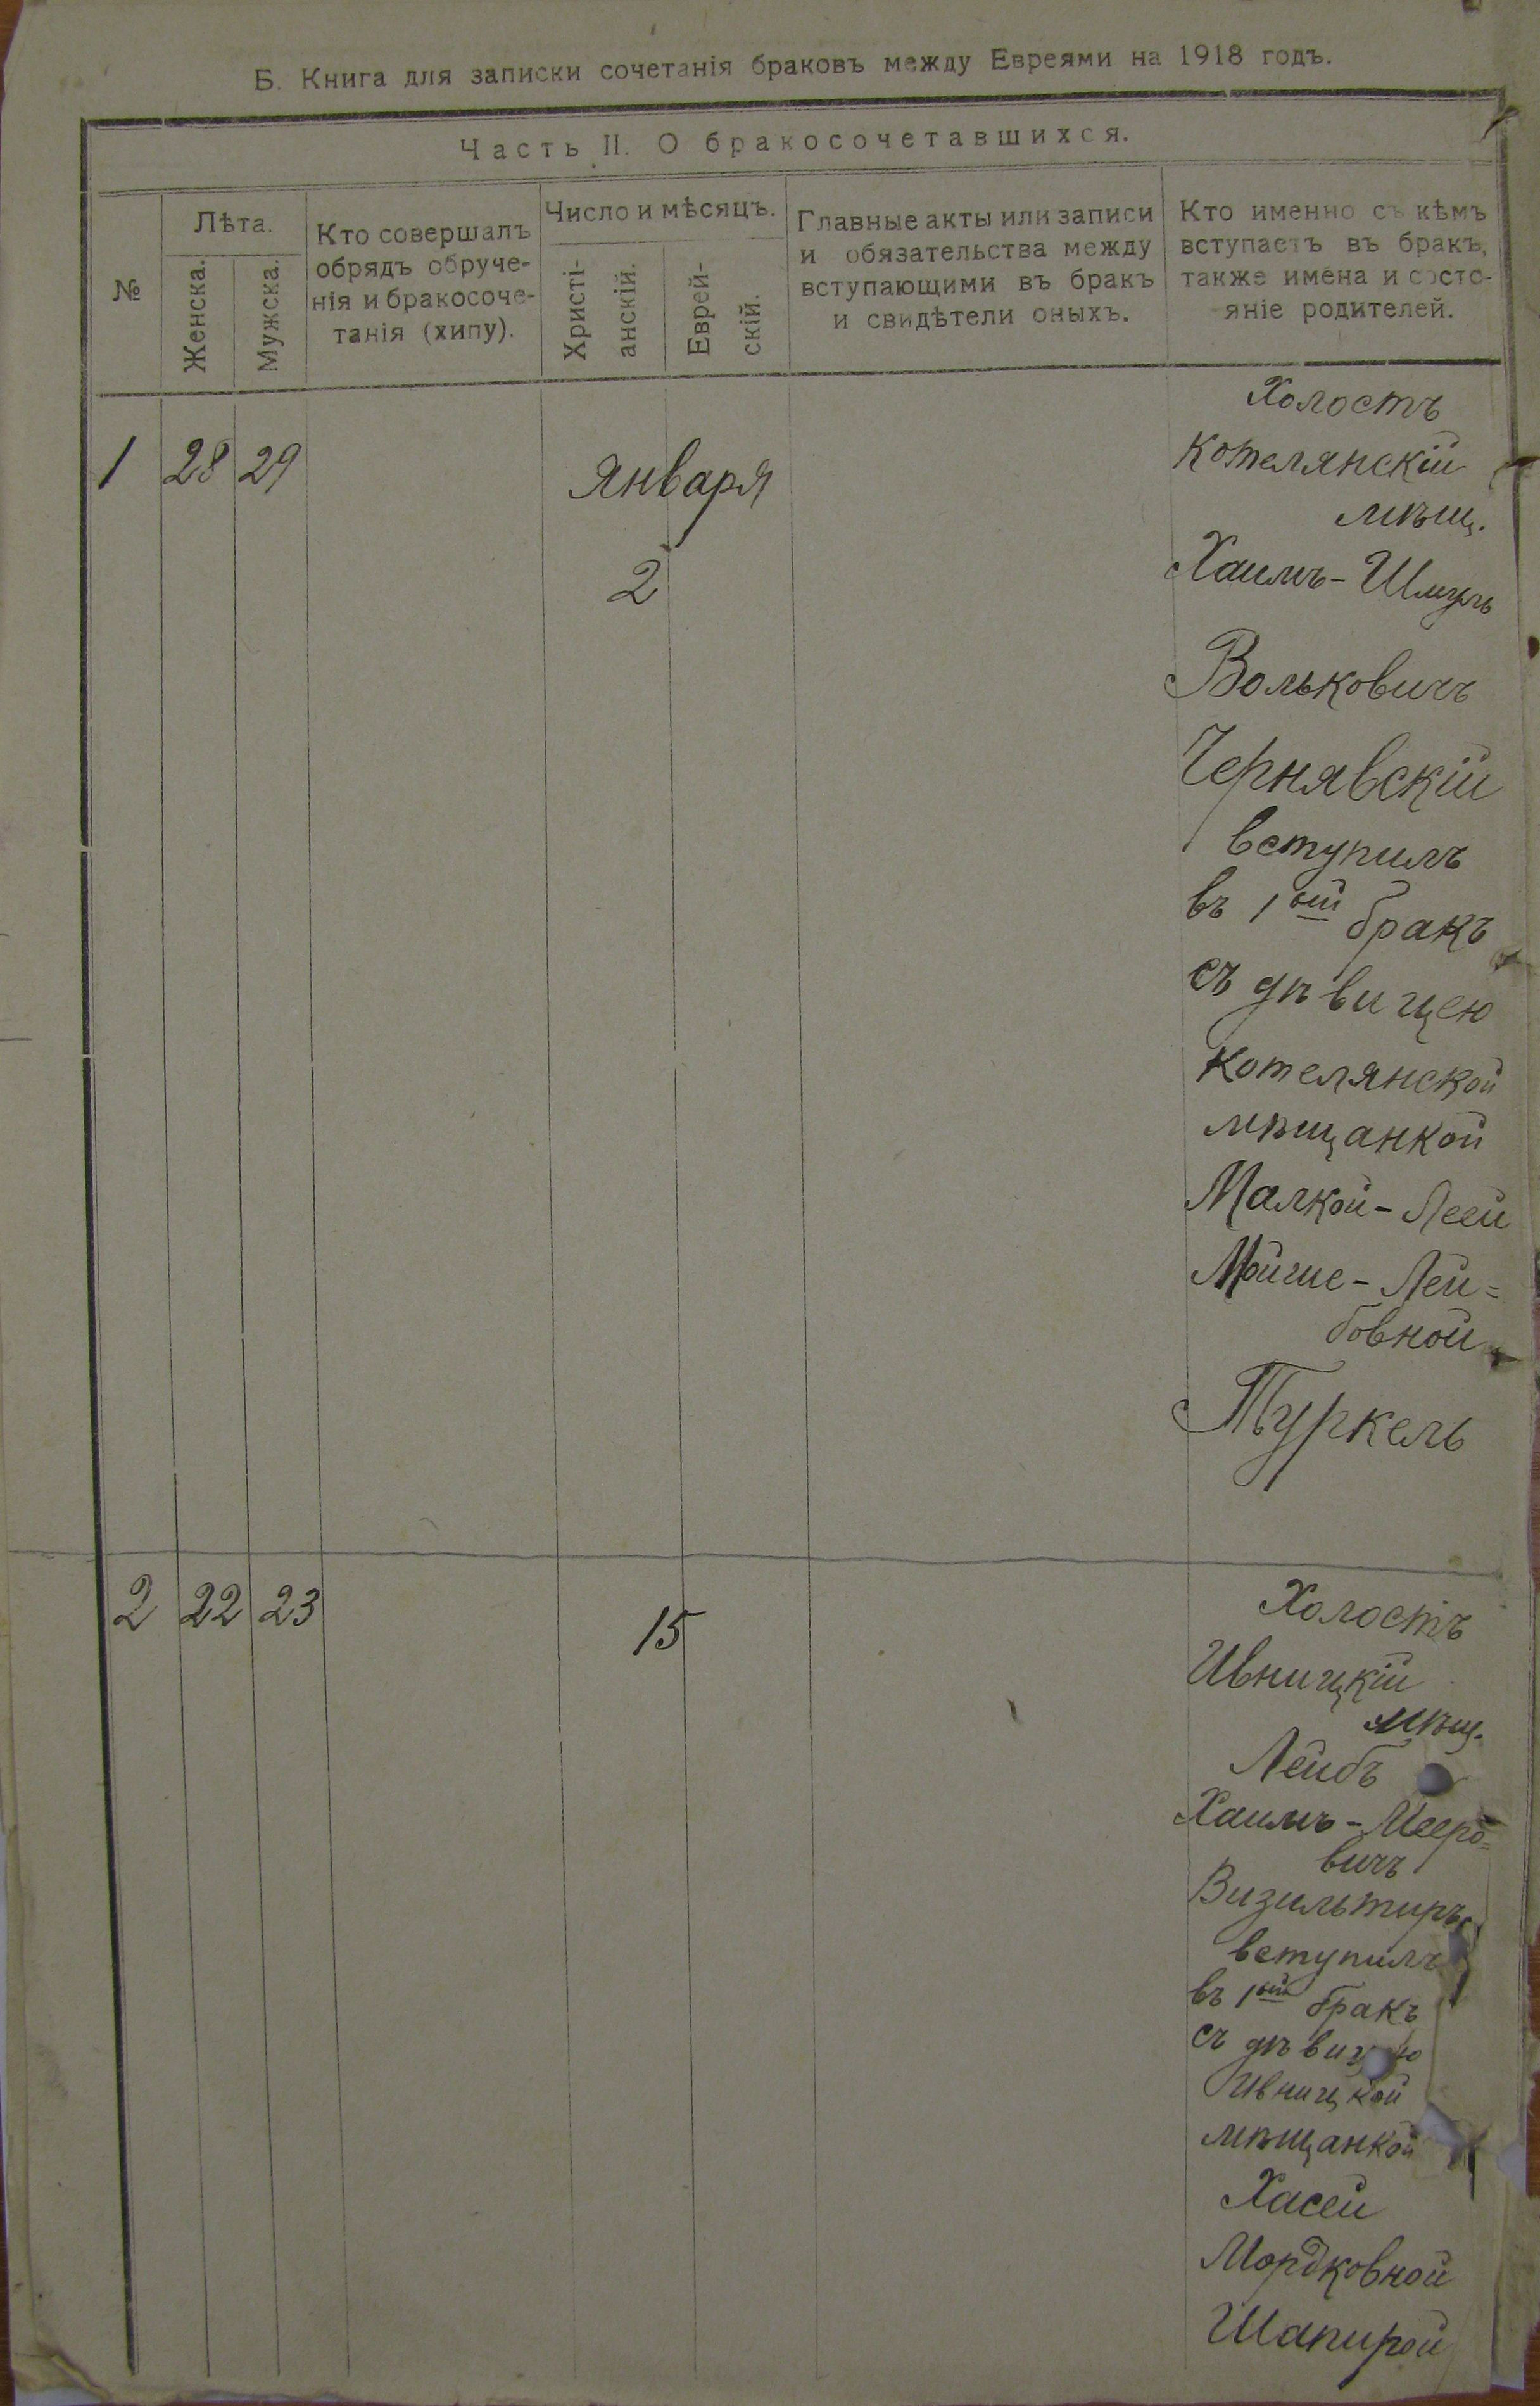 Б. Книга для записки сочетанія браковъ между Евреями на 1918 годъ.
Часть II. О бракосочетавшихся.
№
Лѣта.
Женска.
Мужска.
Кто совершалъ
обрядъ обруче-
нія и бракосоче-
танія (хипу).
Число и мѣсяцъ.
Христі-
анскій.
Еврей-
скій.
Главные акты или записи
и обязательства между
вступающими въ бракъ
и свидѣтели оныхъ.
Кто именно съ кѣмъ
вступаетъ въ бракъ,
также имена и состо-
яніе родителей.
1 28 29
Января
2
Холостъ
Котелянскій
мѣщ.
Хаимъ-Шмуль
Вольковичъ
Чернявскій
вступилъ
въ 1ый бракъ
съ дѣвицею
Котелянской
мѣщанкой
Малкой-Леей
Мойше-Лей=
бовной
Туркель
2 22 23
15
Холостъ
Ивницкій
мѣщ.
Лейбъ
Хаимъ-Мееро=
вичъ
Визильтиръ
вступилъ
въ 1ый бракъ
съ дѣвицею
Ивницкой
мѣщанкой
Хасей
Мордковной
Шапирой